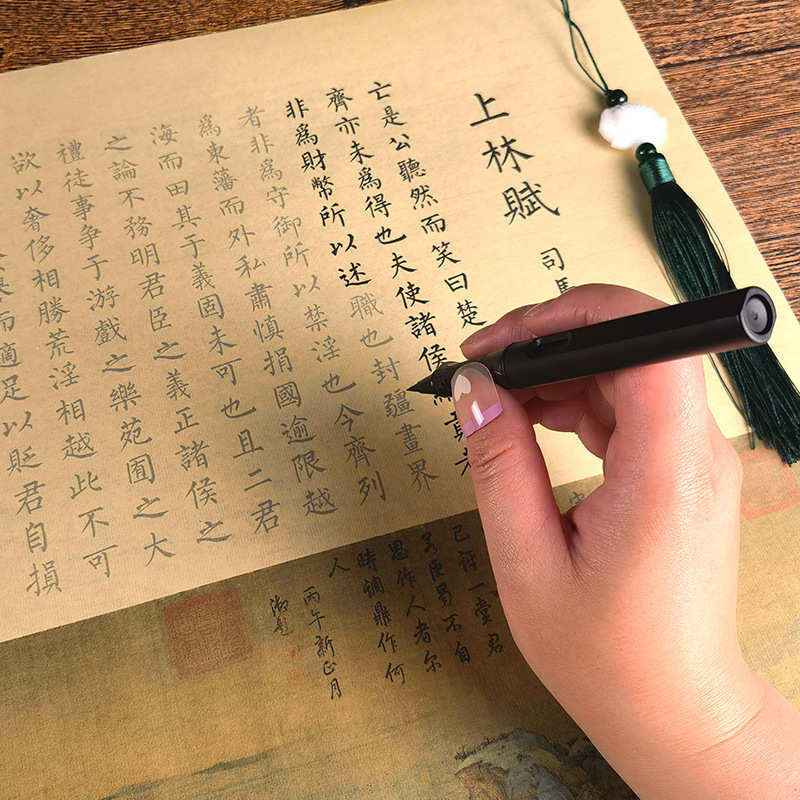 上林賦
司馬
亡是公聽然而笑曰楚
齊亦未爲得也夫使諸侯納貢者
非爲財幣所以述職也封疆畫界
者非爲守御所以禁淫也今齊列
爲東藩而外私肅慎捐國逾限越
海而田其于義固未可也且二君
之論不務明君臣之義正諸侯之
禮徒事争于游戲之樂苑囿之大
欲以奢侈相勝荒淫相越此不可
而適足以貶君自損
一堂君
易不自
作人者尔
鼎作何
人
丙午新正月
御題